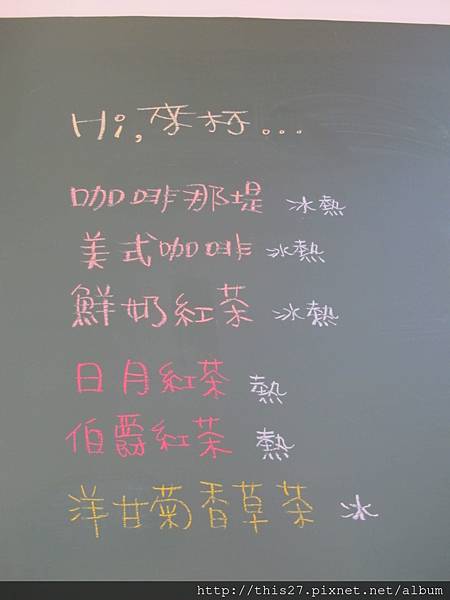 Hi,來杯...
咖啡那堤 冰熱
美式咖啡 冰熱
鮮奶紅茶 冰熱
日月紅茶 熱
伯爵紅茶 熱
洋甘菊香草茶 冰
http://this27.pixnet.net/album